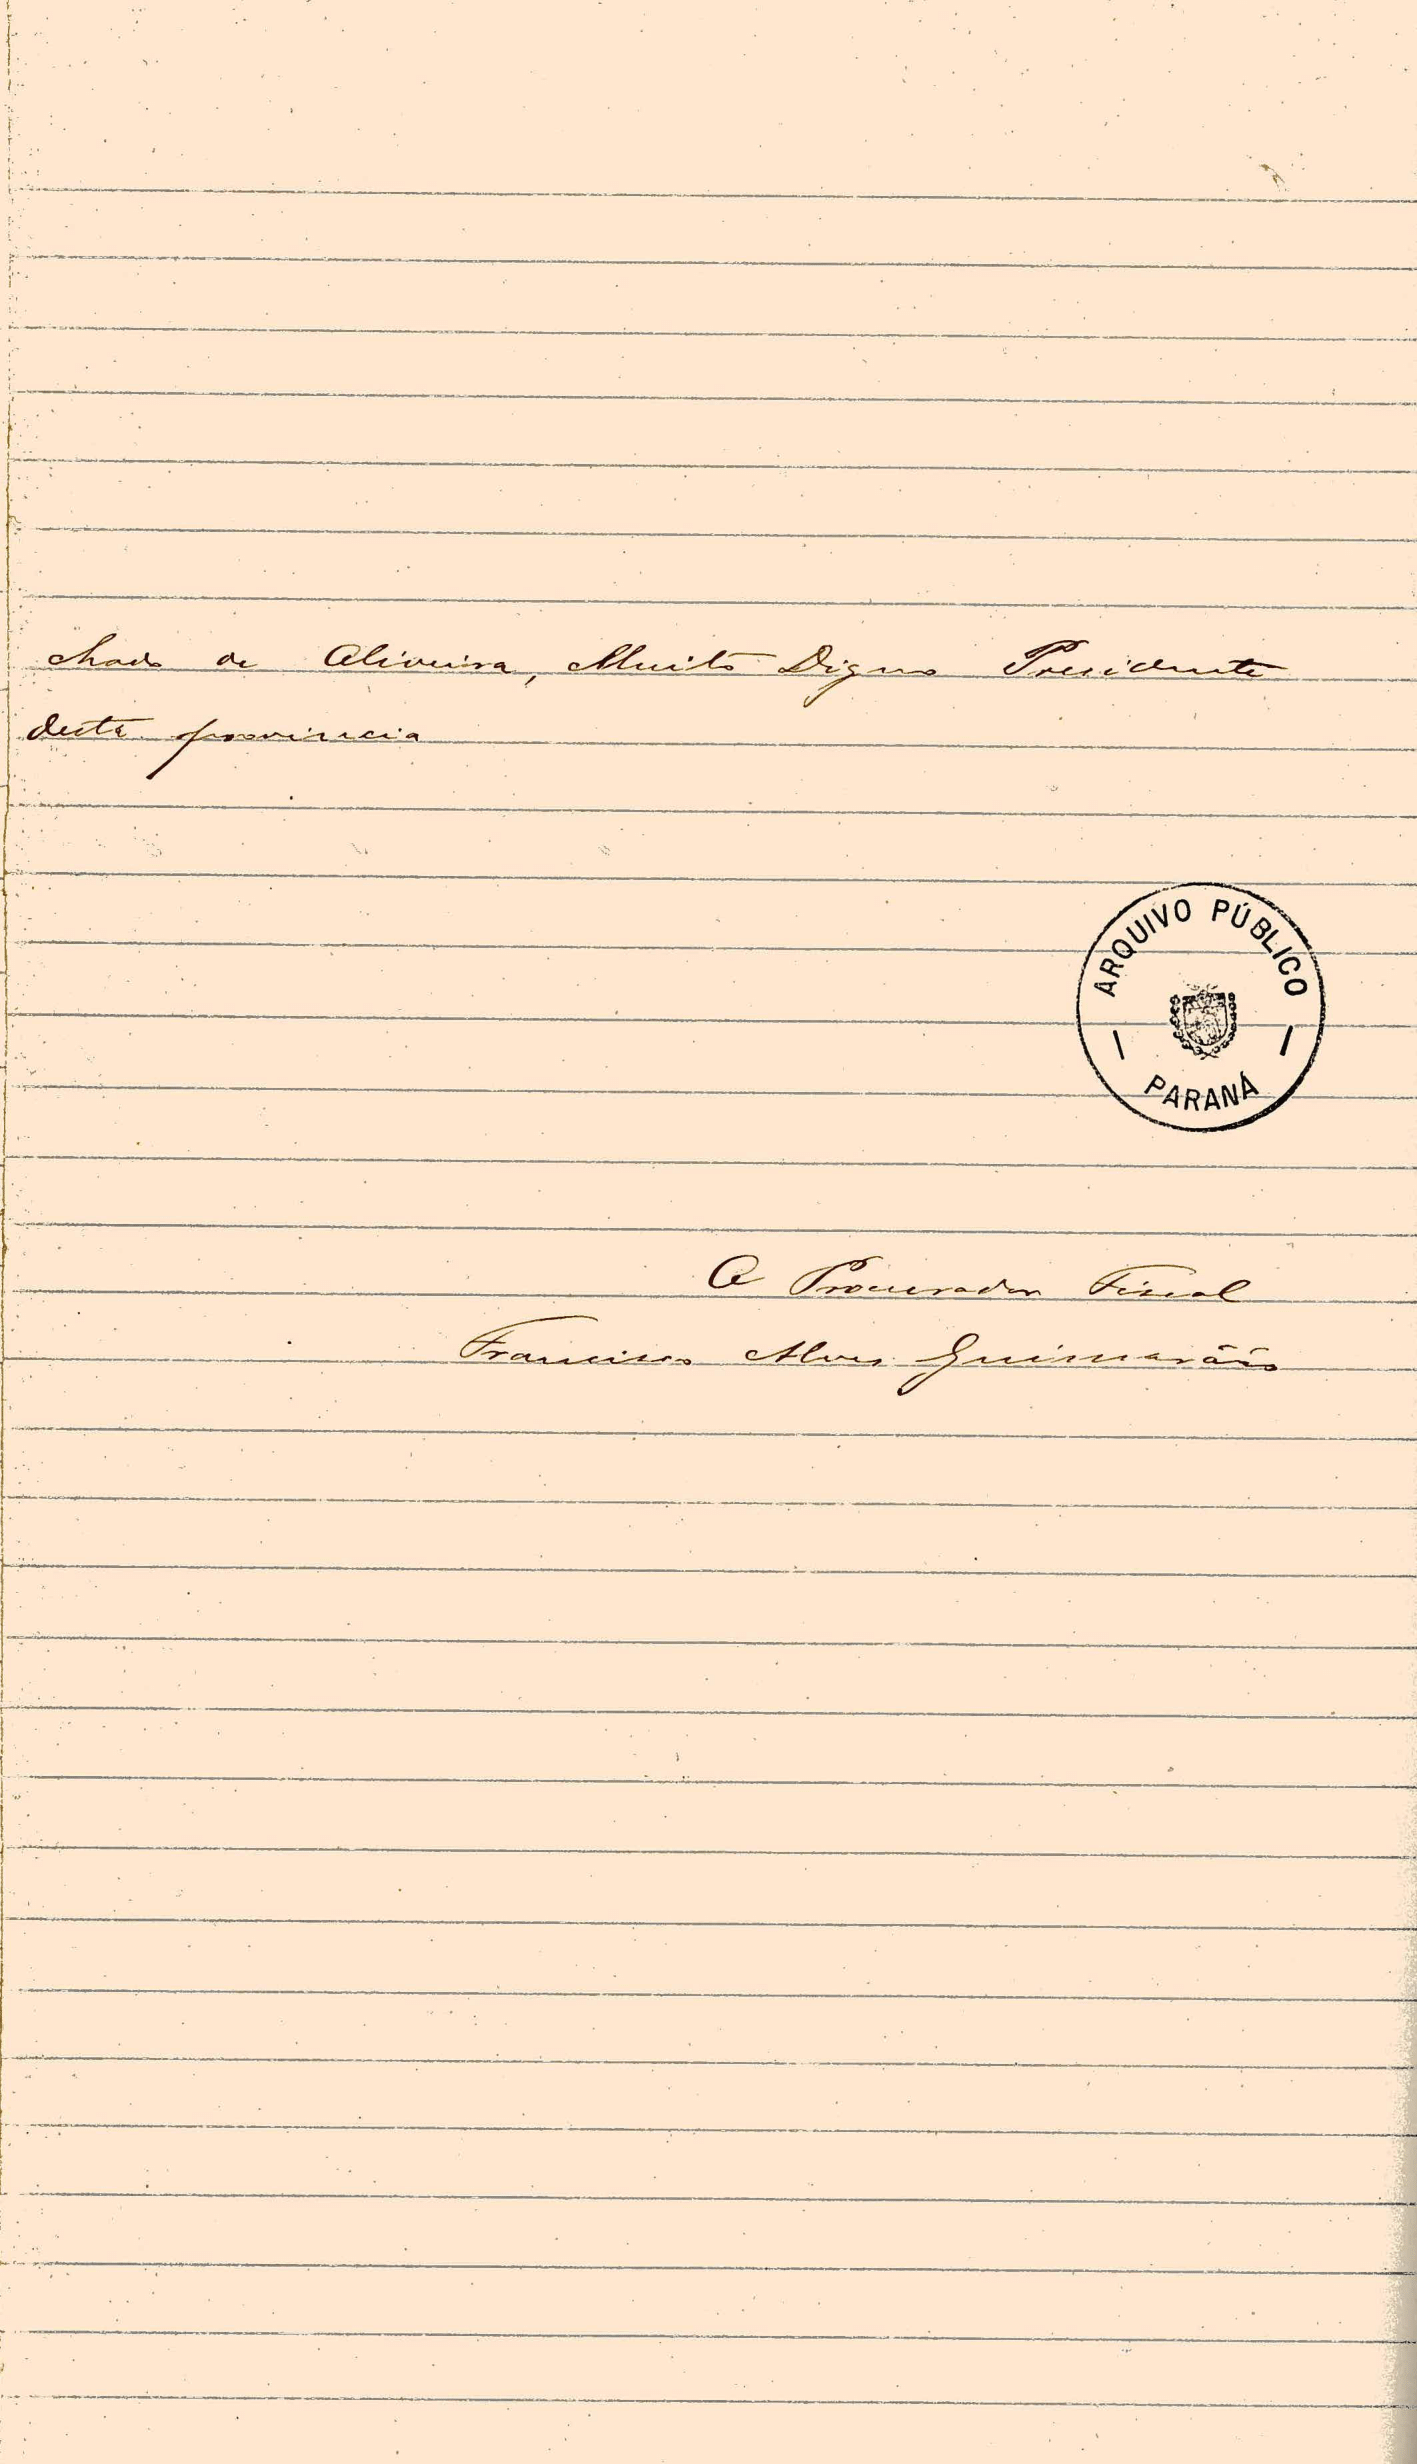 chado de Oliveira, Muito Digno Presidente
desta provincia
ARQUIVO PÚBLICO
PARANÁ
O Procurador Fiscal
Francisco Alves Guimarães